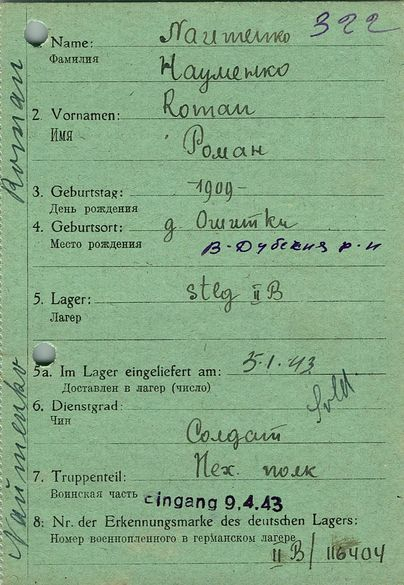 322
1. Name: Naumenko
Фамилия
Науменко
2. Vornamen: Roman
Имя
Роман
3. Geburtstag: -1909-
День рождения
4. Geburtsort: д. Ошитки
Место рождения В-Дубечня р-н
5. Lager: Stlg II B
Лагерь
5a. Im Lager eingeliefert am: 5.1.43
Доставлен в лагерь (число)
6. Dienstgrad: Sold.
Чин
Солдат
7. Truppenteil: Пех. полк
Воинская часть Eingang 9.4.43
8. Nr. der Erkennungsmarke des deutschen Lagers:
Номер военнопленного в германском лагере
II B / 116404
Naumenko Roman